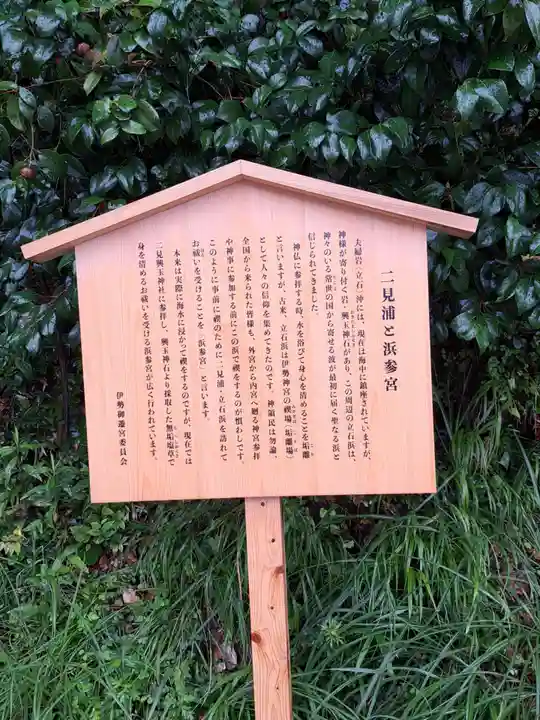 二見浦と浜参宮
夫婦岩(立石)沖には、現在は海中に鎮座されていますが、
神様が寄り付く岩・興玉神石があり、この周辺の立石浜は、
神々のいる常世の国から寄せる波が最初に届く聖なる浜と
信じられてきました。
神仏に参拝する時、水を浴びて身心を清めることを垢離
と言いますが、古来、立石浜は伊勢神宮の禊場(垢離場)
として人々の信仰を集めてきたのです。神領民は勿論、
全国から来られた皆様も、外宮から内宮へ廻る神宮参拝
や神事に参加する前にこの浜で禊をするのが慣わしです。
このように事前に禊のために二見浦・立石浜を訪れて
お祓いを受けることを「浜参宮」と言います。
本来は実際に海水に浸かって禊をするのですが、現在では
二見興玉神社に参拝し、興玉神石より採取した無垢塩草で
身を清めるお祓いを受ける浜参宮が広く行われています。
伊勢御遷宮委員会